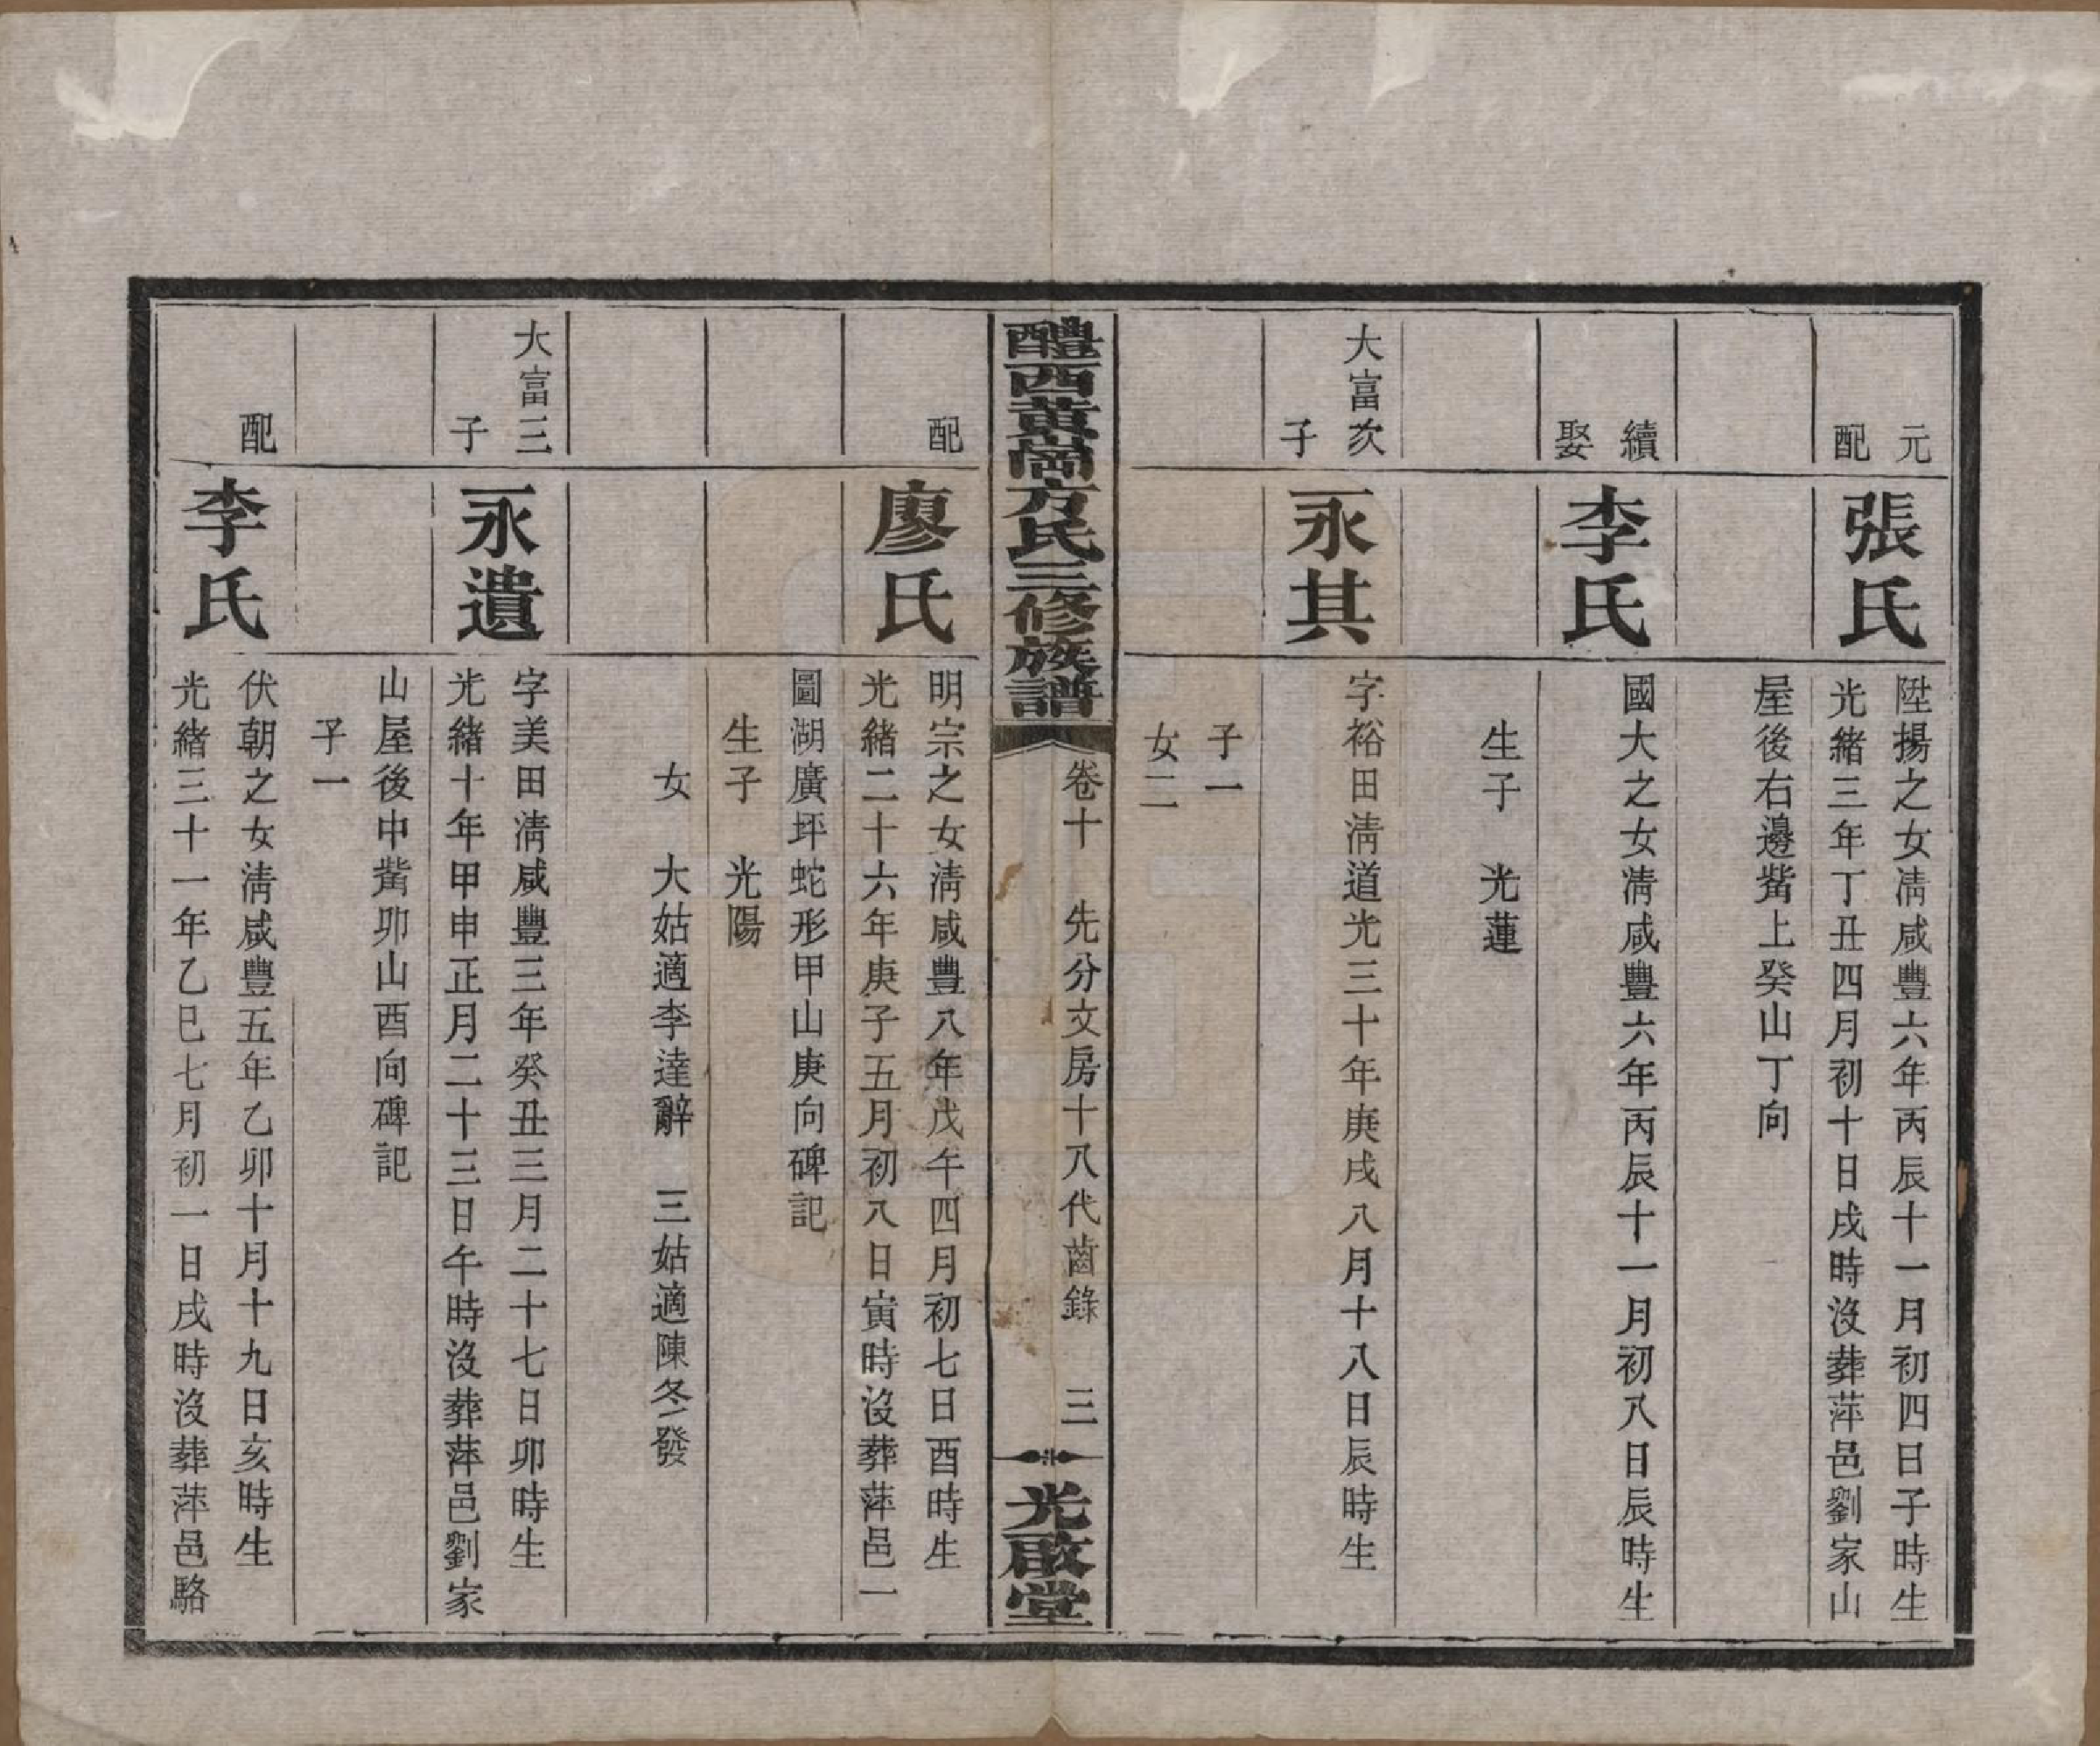 元配
張氏
陞揚之女清咸豐六年丙辰十一月初四日子時生
光緒三年丁丑四月初十日戌時沒葬萍邑劉家山
屋後右邊嘴上癸山丁向
續娶
李氏
國大之女清咸豐六年丙辰十一月初八日辰時生
生子 光蓮
大富次子
永其
字裕田清道光三十年庚戌八月十八日辰時生
子一
女二
醴西黃崗方氏三修族譜
卷十 先分文房十八代齒錄 三
光啟堂
配
廖氏
明宗之女清咸豐八年戊午四月初七日酉時生
光緒二十六年庚子五月初八日寅時沒葬萍邑一
圖湖廣坪蛇形甲山庚向碑記
生子 光陽
女 大姑適李達辭 三姑適陳冬發
大富三子
永遺
字美田清咸豐三年癸丑三月二十七日卯時生
光緒十年甲申正月二十三日午時沒葬萍邑劉家
山屋後中嘴卯山酉向碑記
子一
配
李氏
伏朝之女清咸豐五年乙卯十月十九日亥時生
光緒三十一年乙巳七月初一日戌時沒葬萍邑駱